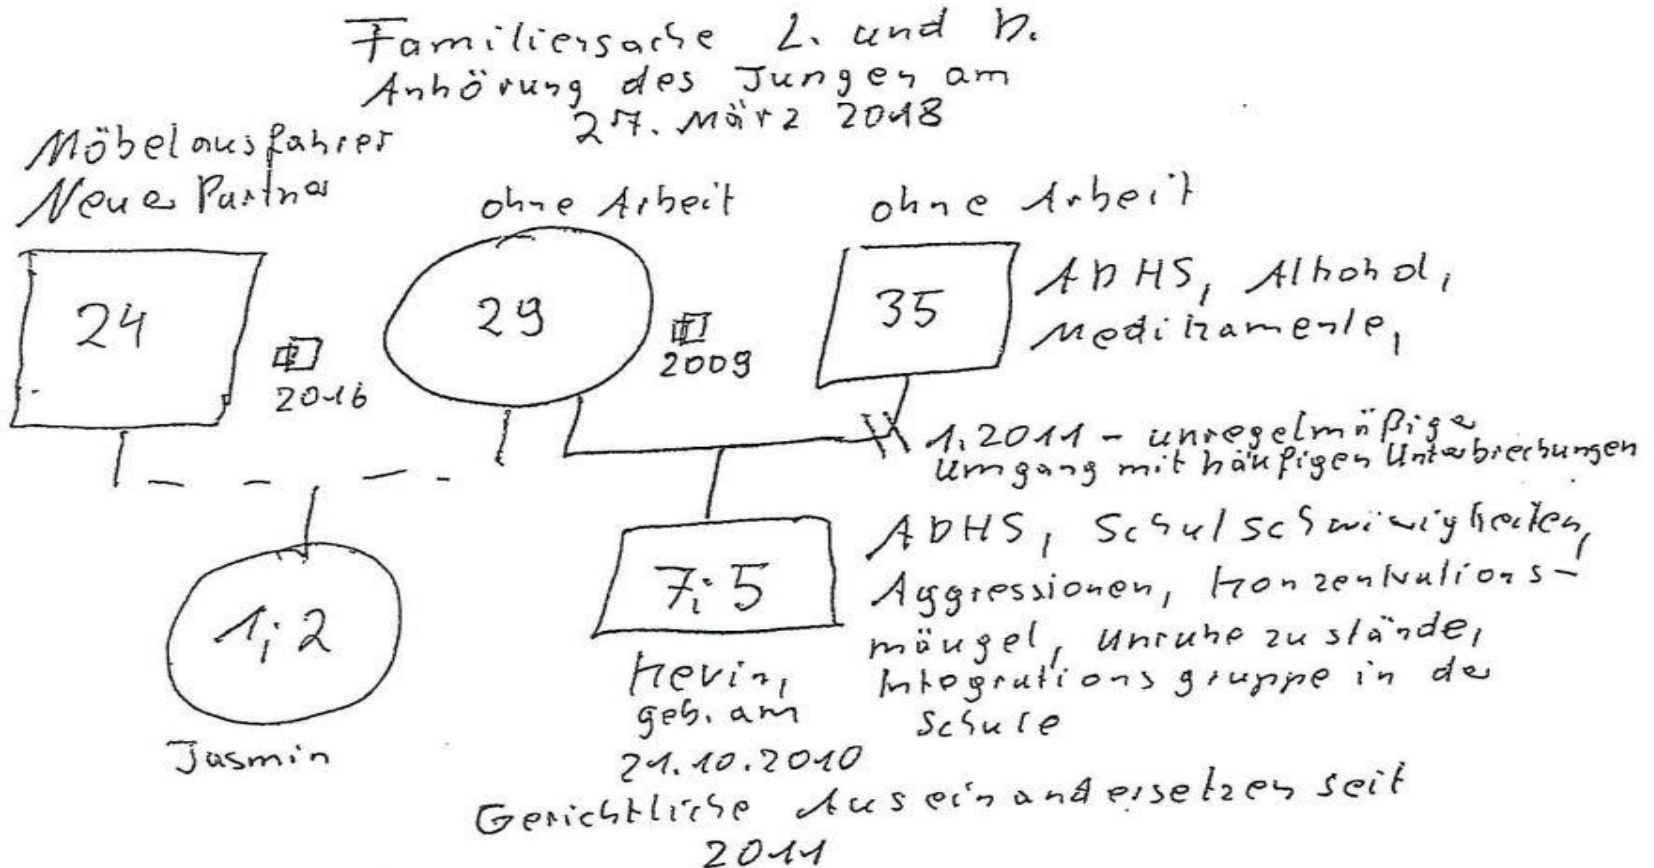 Familiensache L. und D.
Anhörung des Jungen am
27. März 2018
Möbelausfahrer
Neue Partner
ohne Arbeit
ohne Arbeit
24
2016
29
2009
35
ADHS, Alkohol,
Medikamente,
1.2011 - unregelmäßige
Umgang mit häufigen Unterbrechungen
1;2
Jasmin
7;5
Kevin,
geb. am
21.10.2010
ADHS, Schulschwierigkeiten,
Aggressionen, Konzentrations-
mängel, Unruhezustände,
Integrationsgruppe in der
Schule
Gerichtliche Auseinandersetzen seit
2011